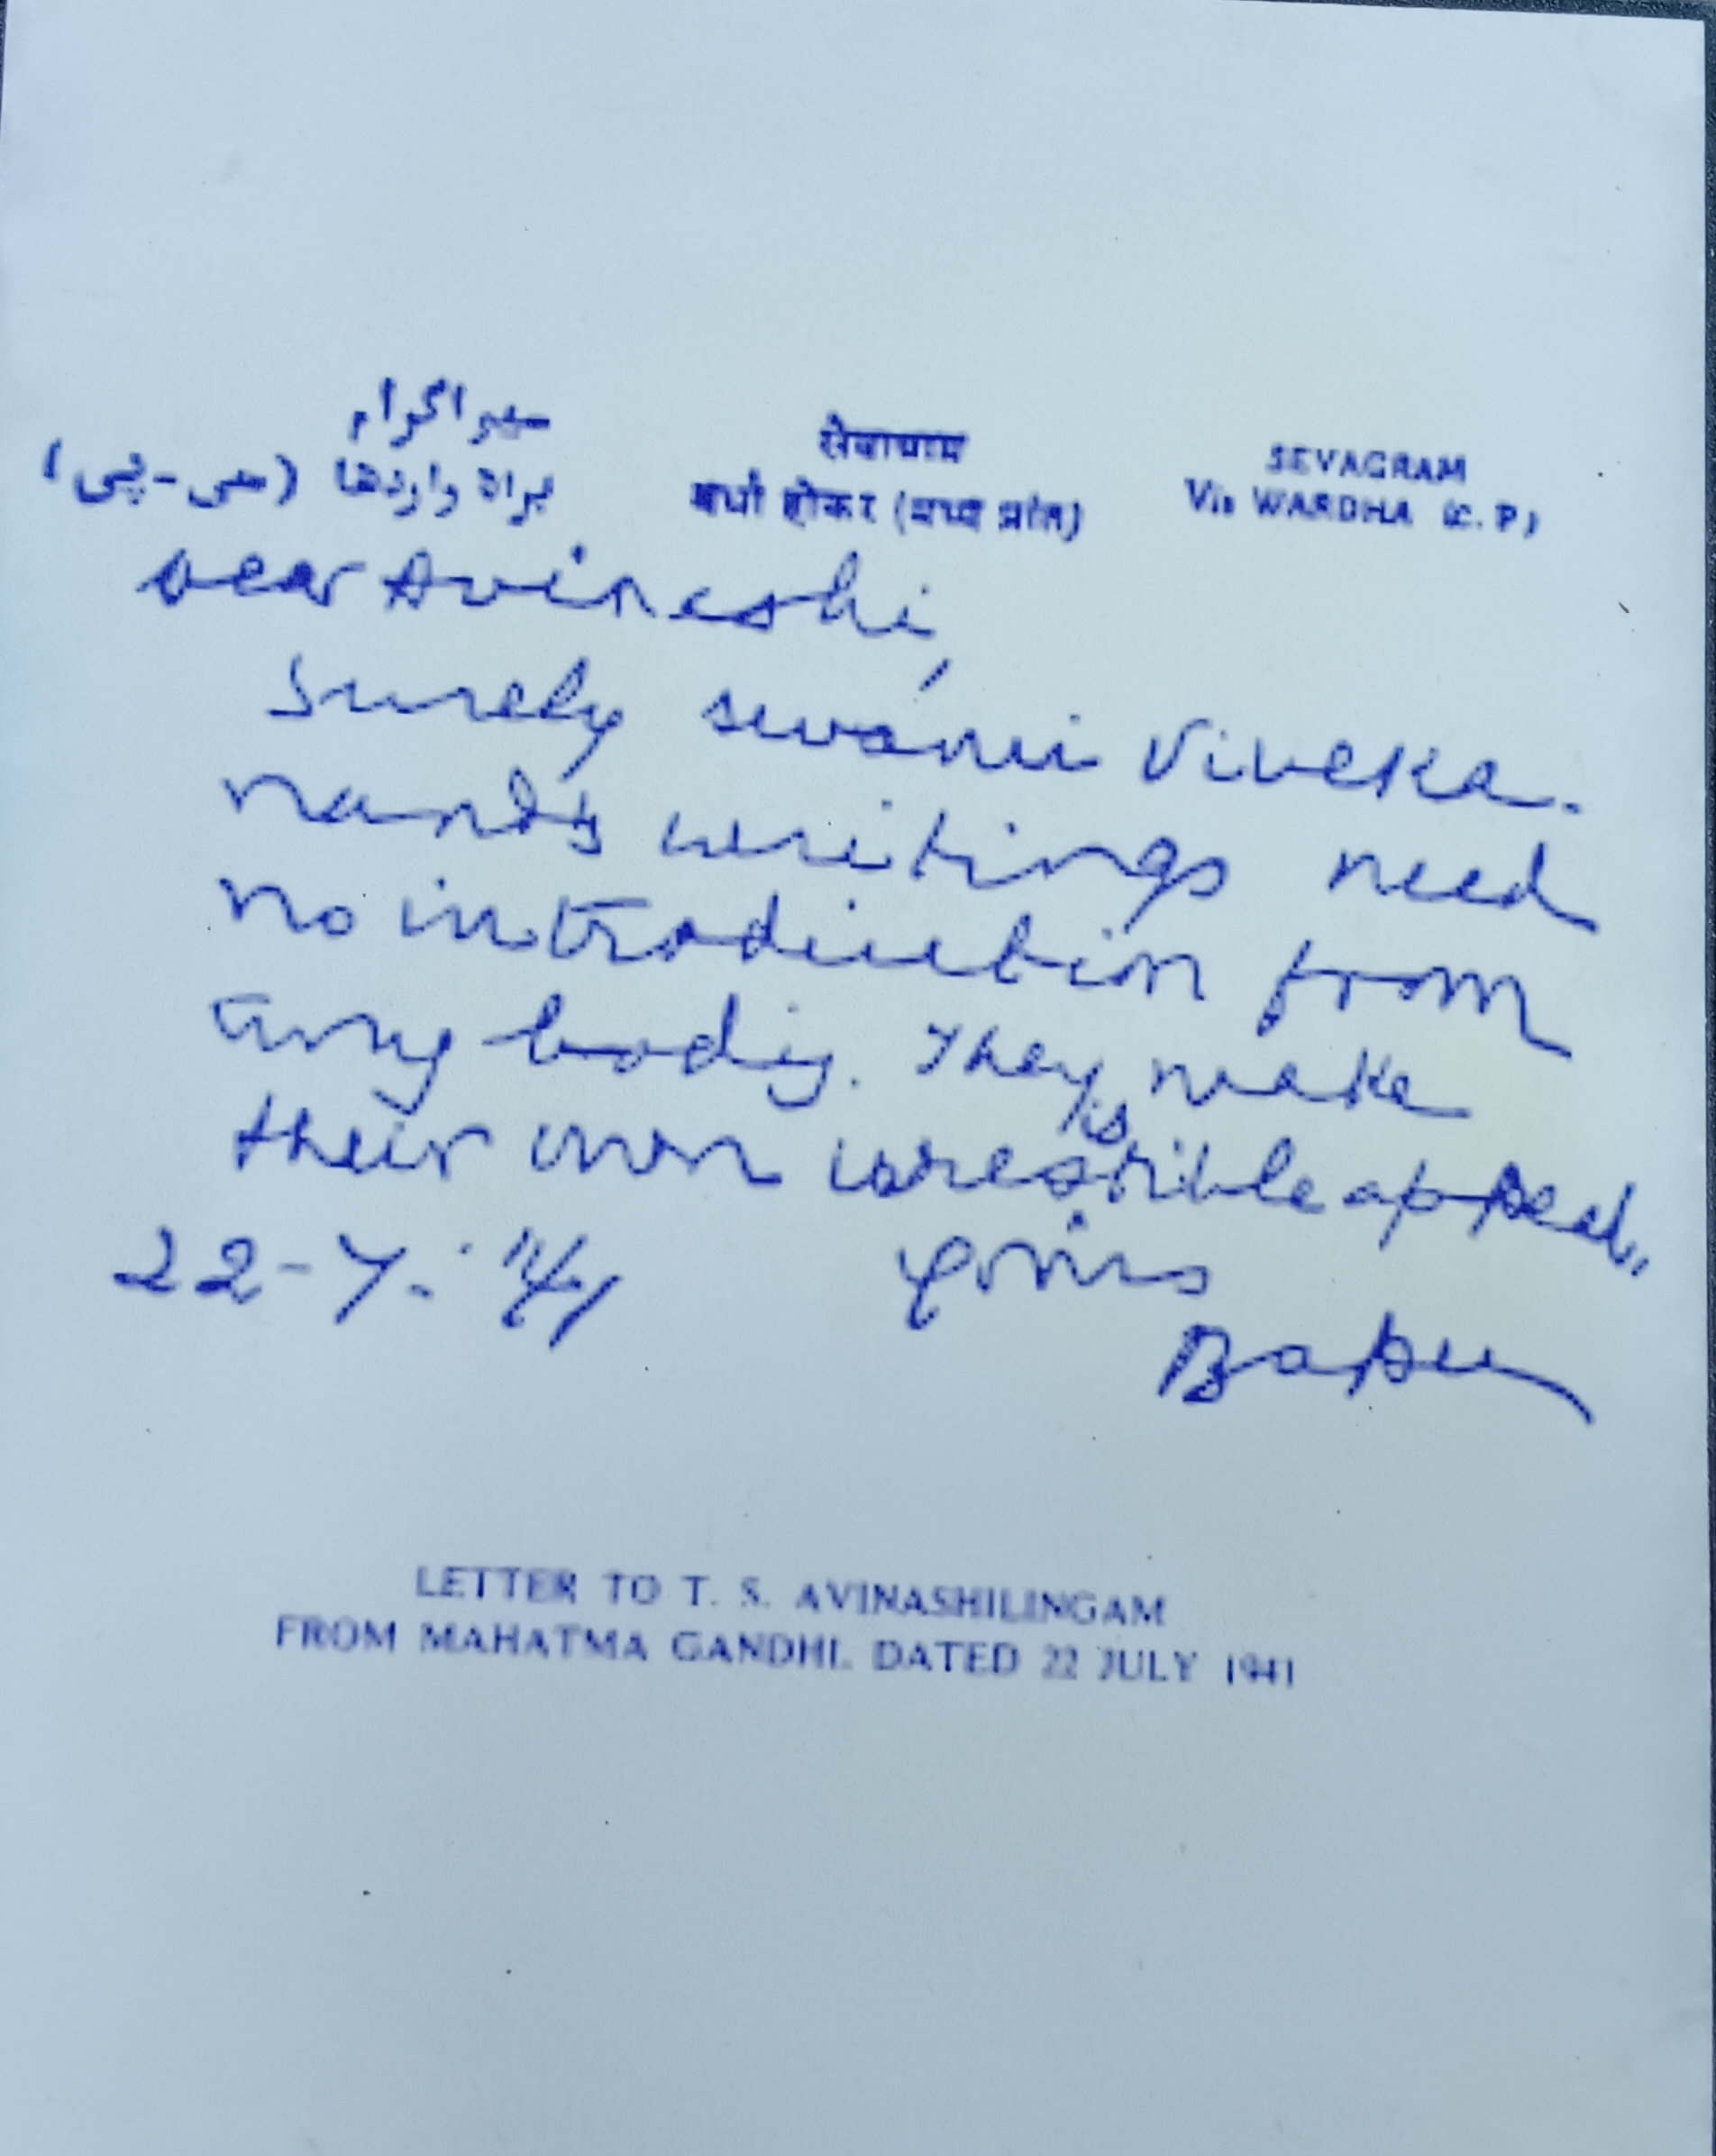 سیواگرام
براہ واردھا (سی-پی)
सेवाग्राम
वर्धा होकर (मध्य प्रांत)
SEVAGRAM
Via WARDHA (C. P)
Dear Avinashi,
Surely Swami Viveka-
nand's writings need
no introduction from
any body. They make
their own irresistible appeal.
22-7-'41
Yours
Bapu
LETTER TO T. S. AVINASHILINGAM
FROM MAHATMA GANDHI. DATED 22 JULY 1941